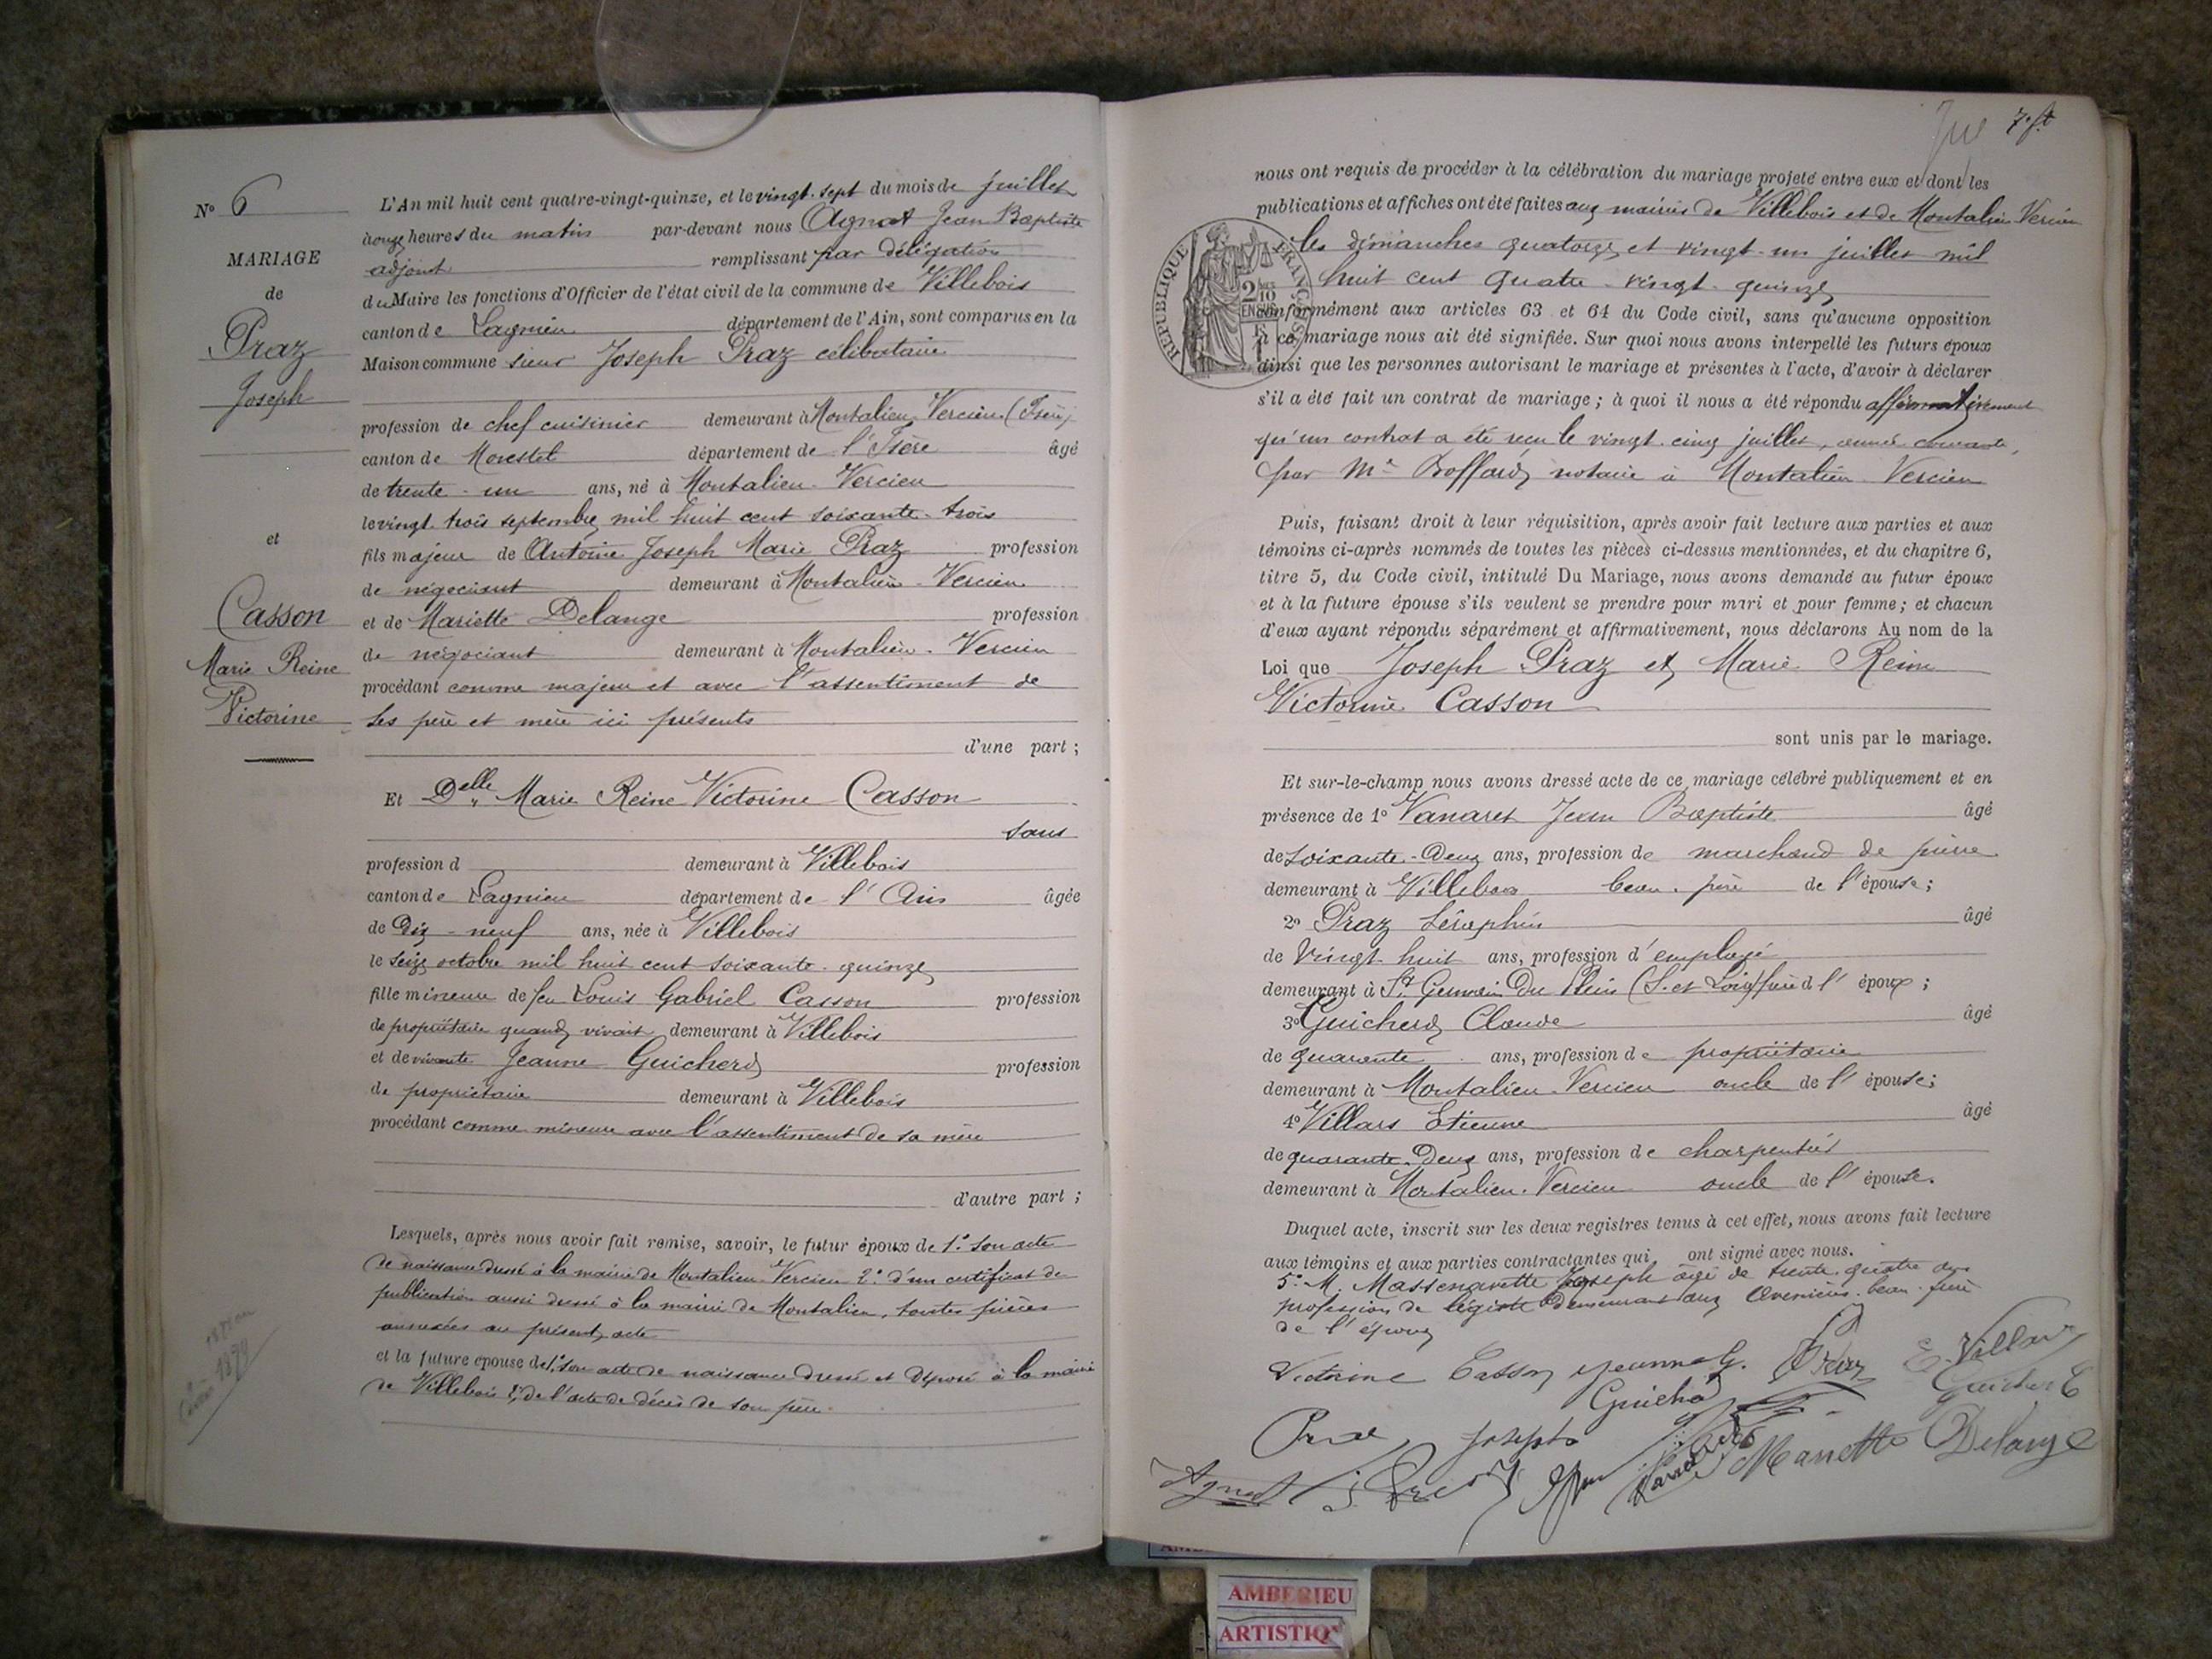 N° 6
MARIAGE
de
Praz
Joseph
et
Casson
Marie Reine
Victorine
L'An mil huit cent quatre-vingt-quinze, et le vingt-sept du mois de juillet
à onze heures du matin par-devant nous Agnat Jean Baptiste
adjoint remplissant par délégation
du Maire les fonctions d'Officier de l'état civil de la commune de Villebois
canton de Lagnieu département de l'Ain, sont comparus en la
Maison commune sieur Joseph Praz célibataire
profession de chef cuisinier demeurant à Montalieu-Vercieu (Isère)
canton de Morestel département de l'Isère âgé
de trente-un ans, né à Montalieu-Vercieu
le vingt trois septembre mil huit cent soixante-trois
fils majeur de Antoine Joseph Marie Praz profession
de négociant demeurant à Montalieu-Vercieu
et de Mariette Delange profession
de négociant demeurant à Montalieu-Vercieu
procédant comme majeur et avec l'assentiment de
ses père et mère ici présents
d'une part ;
Et Delle Marie Reine Victorine Casson
sans
profession d demeurant à Villebois
canton de Lagnieu département de l'Ain âgée
de Dix-neuf ans, née à Villebois
le seize octobre mil huit cent soixante-quinze
fille mineure de feu Louis Gabriel Casson profession
de propriétaire quand vivait demeurant à Villebois
et de vivante Jeanne Guicherd profession
de propriétaire demeurant à Villebois
procédant comme mineure avec l'assentiment de sa mère
d'autre part ;
Lesquels, après nous avoir fait remise, savoir, le futur époux de 1° son acte
de naissance dressé à la mairie de Montalieu-Vercieu 2° d'un certificat de
publication aussi dressé à la mairie de Montalieu, toutes pièces
annexées au présent acte
et la future épouse de 1° son acte de naissance dressé et déposé à la mairie
de Villebois 2° de l'acte de décès de son père.
1899
7 ft
nous ont requis de procéder à la célébration du mariage projeté entre eux et dont les
publications et affiches ont été faites aux mairies de Villebois et de Montalieu Vercieu
les dimanches quatorze et vingt-un juillet mil
huit cent quatre-vingt-quinze
RÉPUBLIQUE FRANÇAISE
2/10 EN SUS
conformément aux articles 63 et 64 du Code civil, sans qu'aucune opposition
à ce mariage nous ait été signifiée. Sur quoi nous avons interpellé les futurs époux
ainsi que les personnes autorisant le mariage et présentes à l'acte, d'avoir à déclarer
s'il a été fait un contrat de mariage ; à quoi il nous a été répondu affirmativement
qu'un contrat a été reçu le vingt-cinq juillet, année courante,
par Me Boffard, notaire à Montalieu Vercieu
Puis, faisant droit à leur réquisition, après avoir fait lecture aux parties et aux
témoins ci-après nommés de toutes les pièces ci-dessus mentionnées, et du chapitre 6,
titre 5, du Code civil, intitulé Du Mariage, nous avons demandé au futur époux
et à la future épouse s'ils veulent se prendre pour mari et pour femme ; et chacun
d'eux ayant répondu séparément et affirmativement, nous déclarons Au nom de la
Loi que Joseph Praz et Marie Reine
Victorine Casson
sont unis par le mariage.
Et sur-le-champ nous avons dressé acte de ce mariage célébré publiquement et en
présence de 1° Vanaret Jean Baptiste âgé
de soixante-Deux ans, profession de marchand de pierre
demeurant à Villebois beau-père de l'épouse ;
2° Praz Séraphin âgé
de Vingt huit ans, profession d'employé
demeurant à St Germain Du Plain (S. et Loire) frère d l'époux ;
3° Guicherd Claude âgé
de quarante ans, profession de propriétaire
demeurant à Montalieu-Vercieu oncle de l'épouse ;
4° Villars Etienne âgé
de quarante-Deux ans, profession de charpentier
demeurant à Montalieu-Vercieu oncle de l'épouse.
Duquel acte, inscrit sur les deux registres tenus à cet effet, nous avons fait lecture
aux témoins et aux parties contractantes qui ont signé avec nous.
5° M. Massenavette Joseph âgé de trente-quatre ans
profession de légiste demeurant aux Avenières beau-frère
de l'époux
Victorine Casson Jeanne G. Praz E. Villars
Guichard
Praz Joseph Mariette Delange
Agnat
AMBERIEU
ARTISTIQ